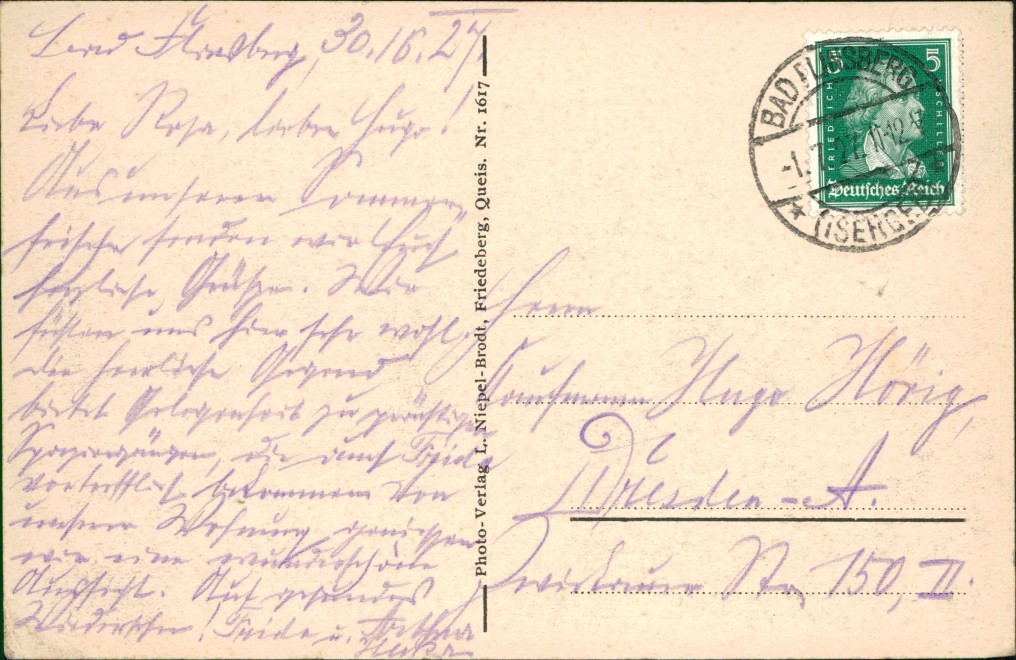 Bad Flinsberg, 30.6.27.
Liebe Rosa, lieber Hugo!
Aus unserer Sommer-
frische senden wir Euch
herzliche Grüße. Wir
fühlen uns hier sehr wohl,
die herrliche Gegend
bietet Gelegenheit zu prächtigen
Spaziergängen, die auch Frieda
vortrefflich bekommen. Von
unserer Wohnung geniessen
wir eine wunderschöne
Aussicht. Auf gesundes
Wiedersehn! Frieda u.
Photo-Verlag L. Niepel-Brodt, Friedeberg, Queis. Nr. 1617
5 5
FRIEDRICH SCHILLER
Deutsches Reich
BAD FLINSBERG
-1. 27. 11-12
* (ISERGEB.)
Herrn
Kaufmann Hugo Hörig,
Dresden-A.
Zwickauer Str. 150, II.